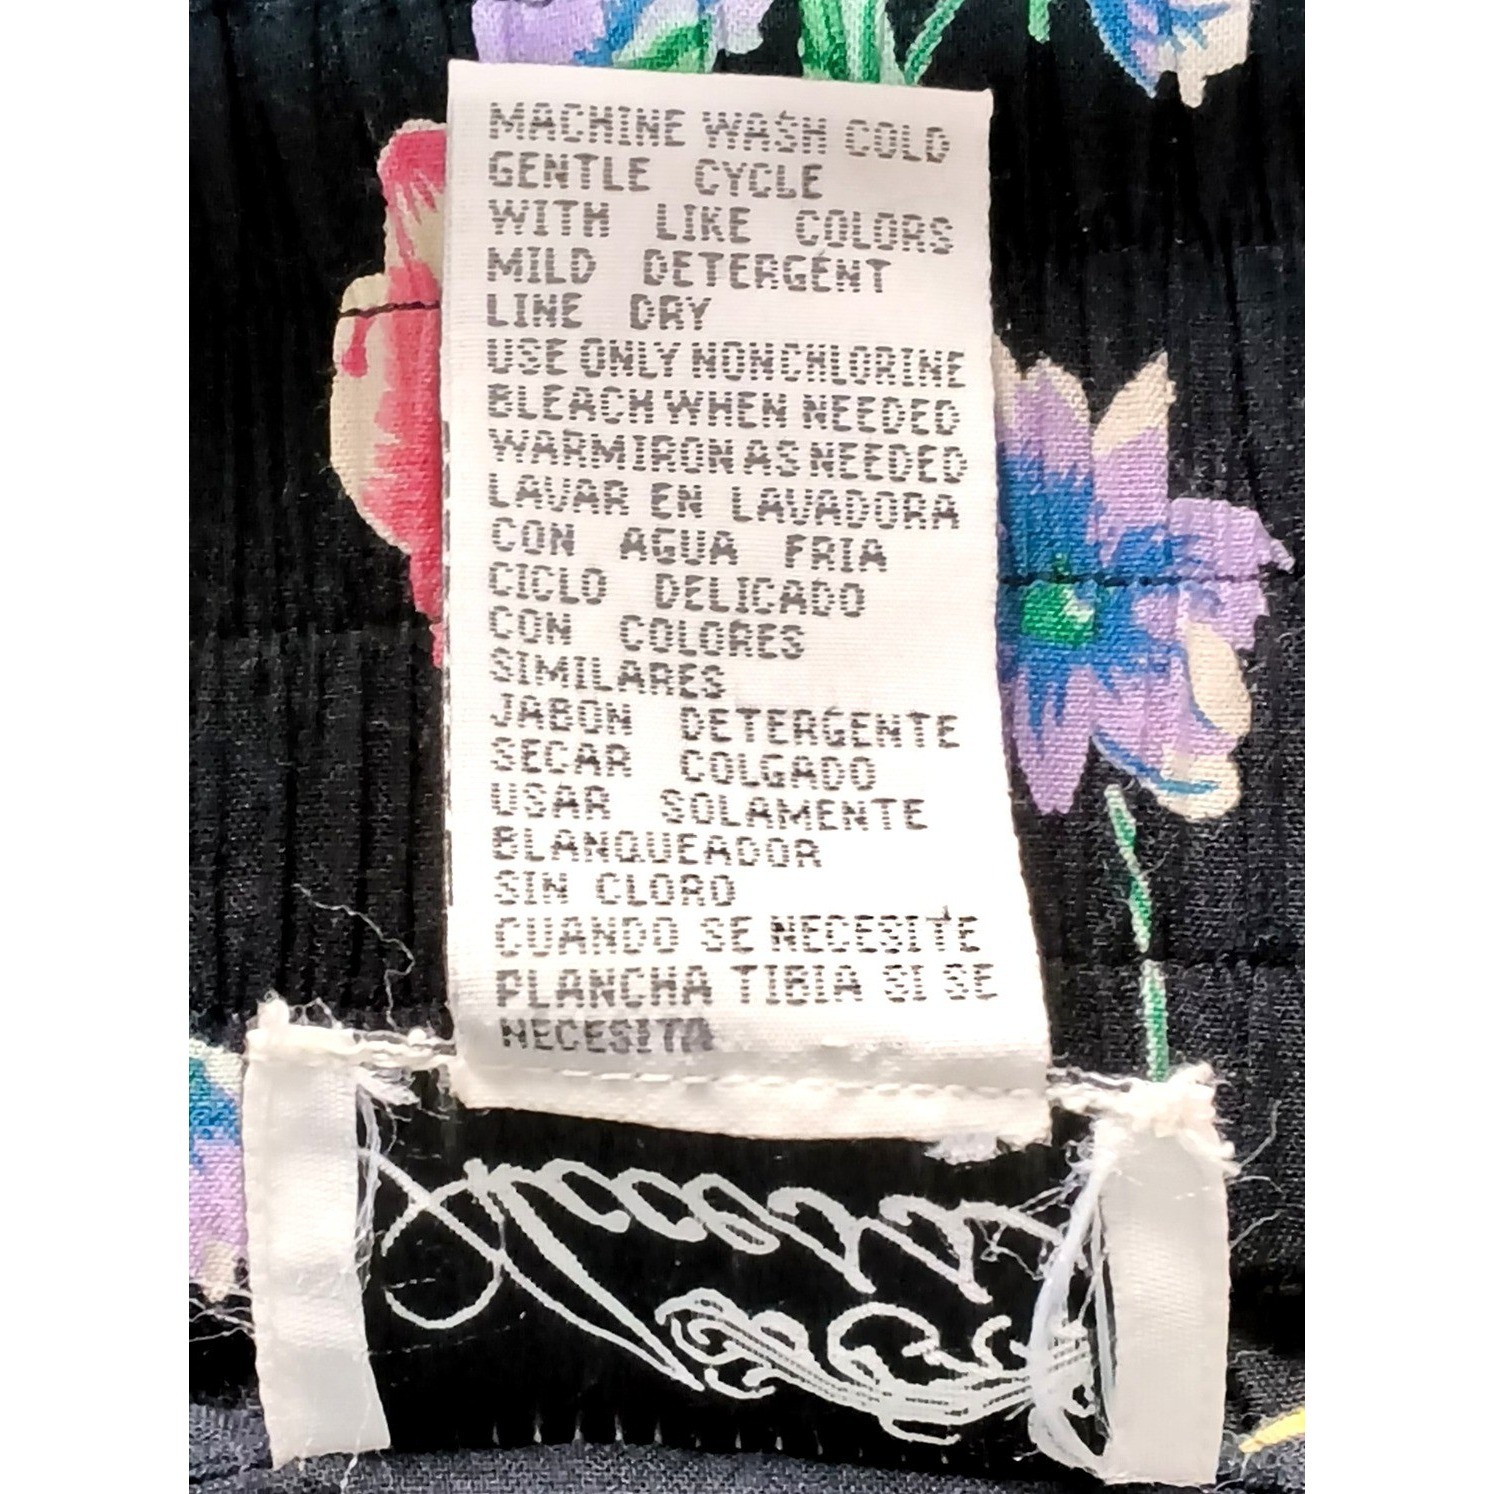 MACHINE WASH COLD
GENTLE CYCLE
WITH LIKE COLORS
MILD DETERGENT
LINE DRY
USE ONLY NONCHLORINE
BLEACH WHEN NEEDED
WARM IRON AS NEEDED
LAVAR EN LAVADORA
CON AGUA FRIA
CICLO DELICADO
CON COLORES
SIMILARES
JABON DETERGENTE
SECAR COLGADO
USAR SOLAMENTE
BLANQUEADOR
SIN CLORO
CUANDO SE NECESITE
PLANCHA TIBIA SI SE
NECESITA